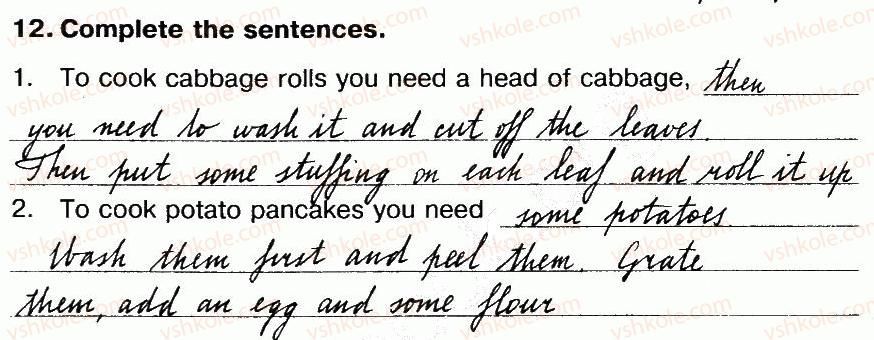 12. Complete the sentences.
1. To cook cabbage rolls you need a head of cabbage, then
you need to wash it and cut off the leaves.
Then put some stuffing on each leaf and roll it up
2. To cook potato pancakes you need some potatoes.
Wash them first and peel them. Grate
them, add an egg and some flour